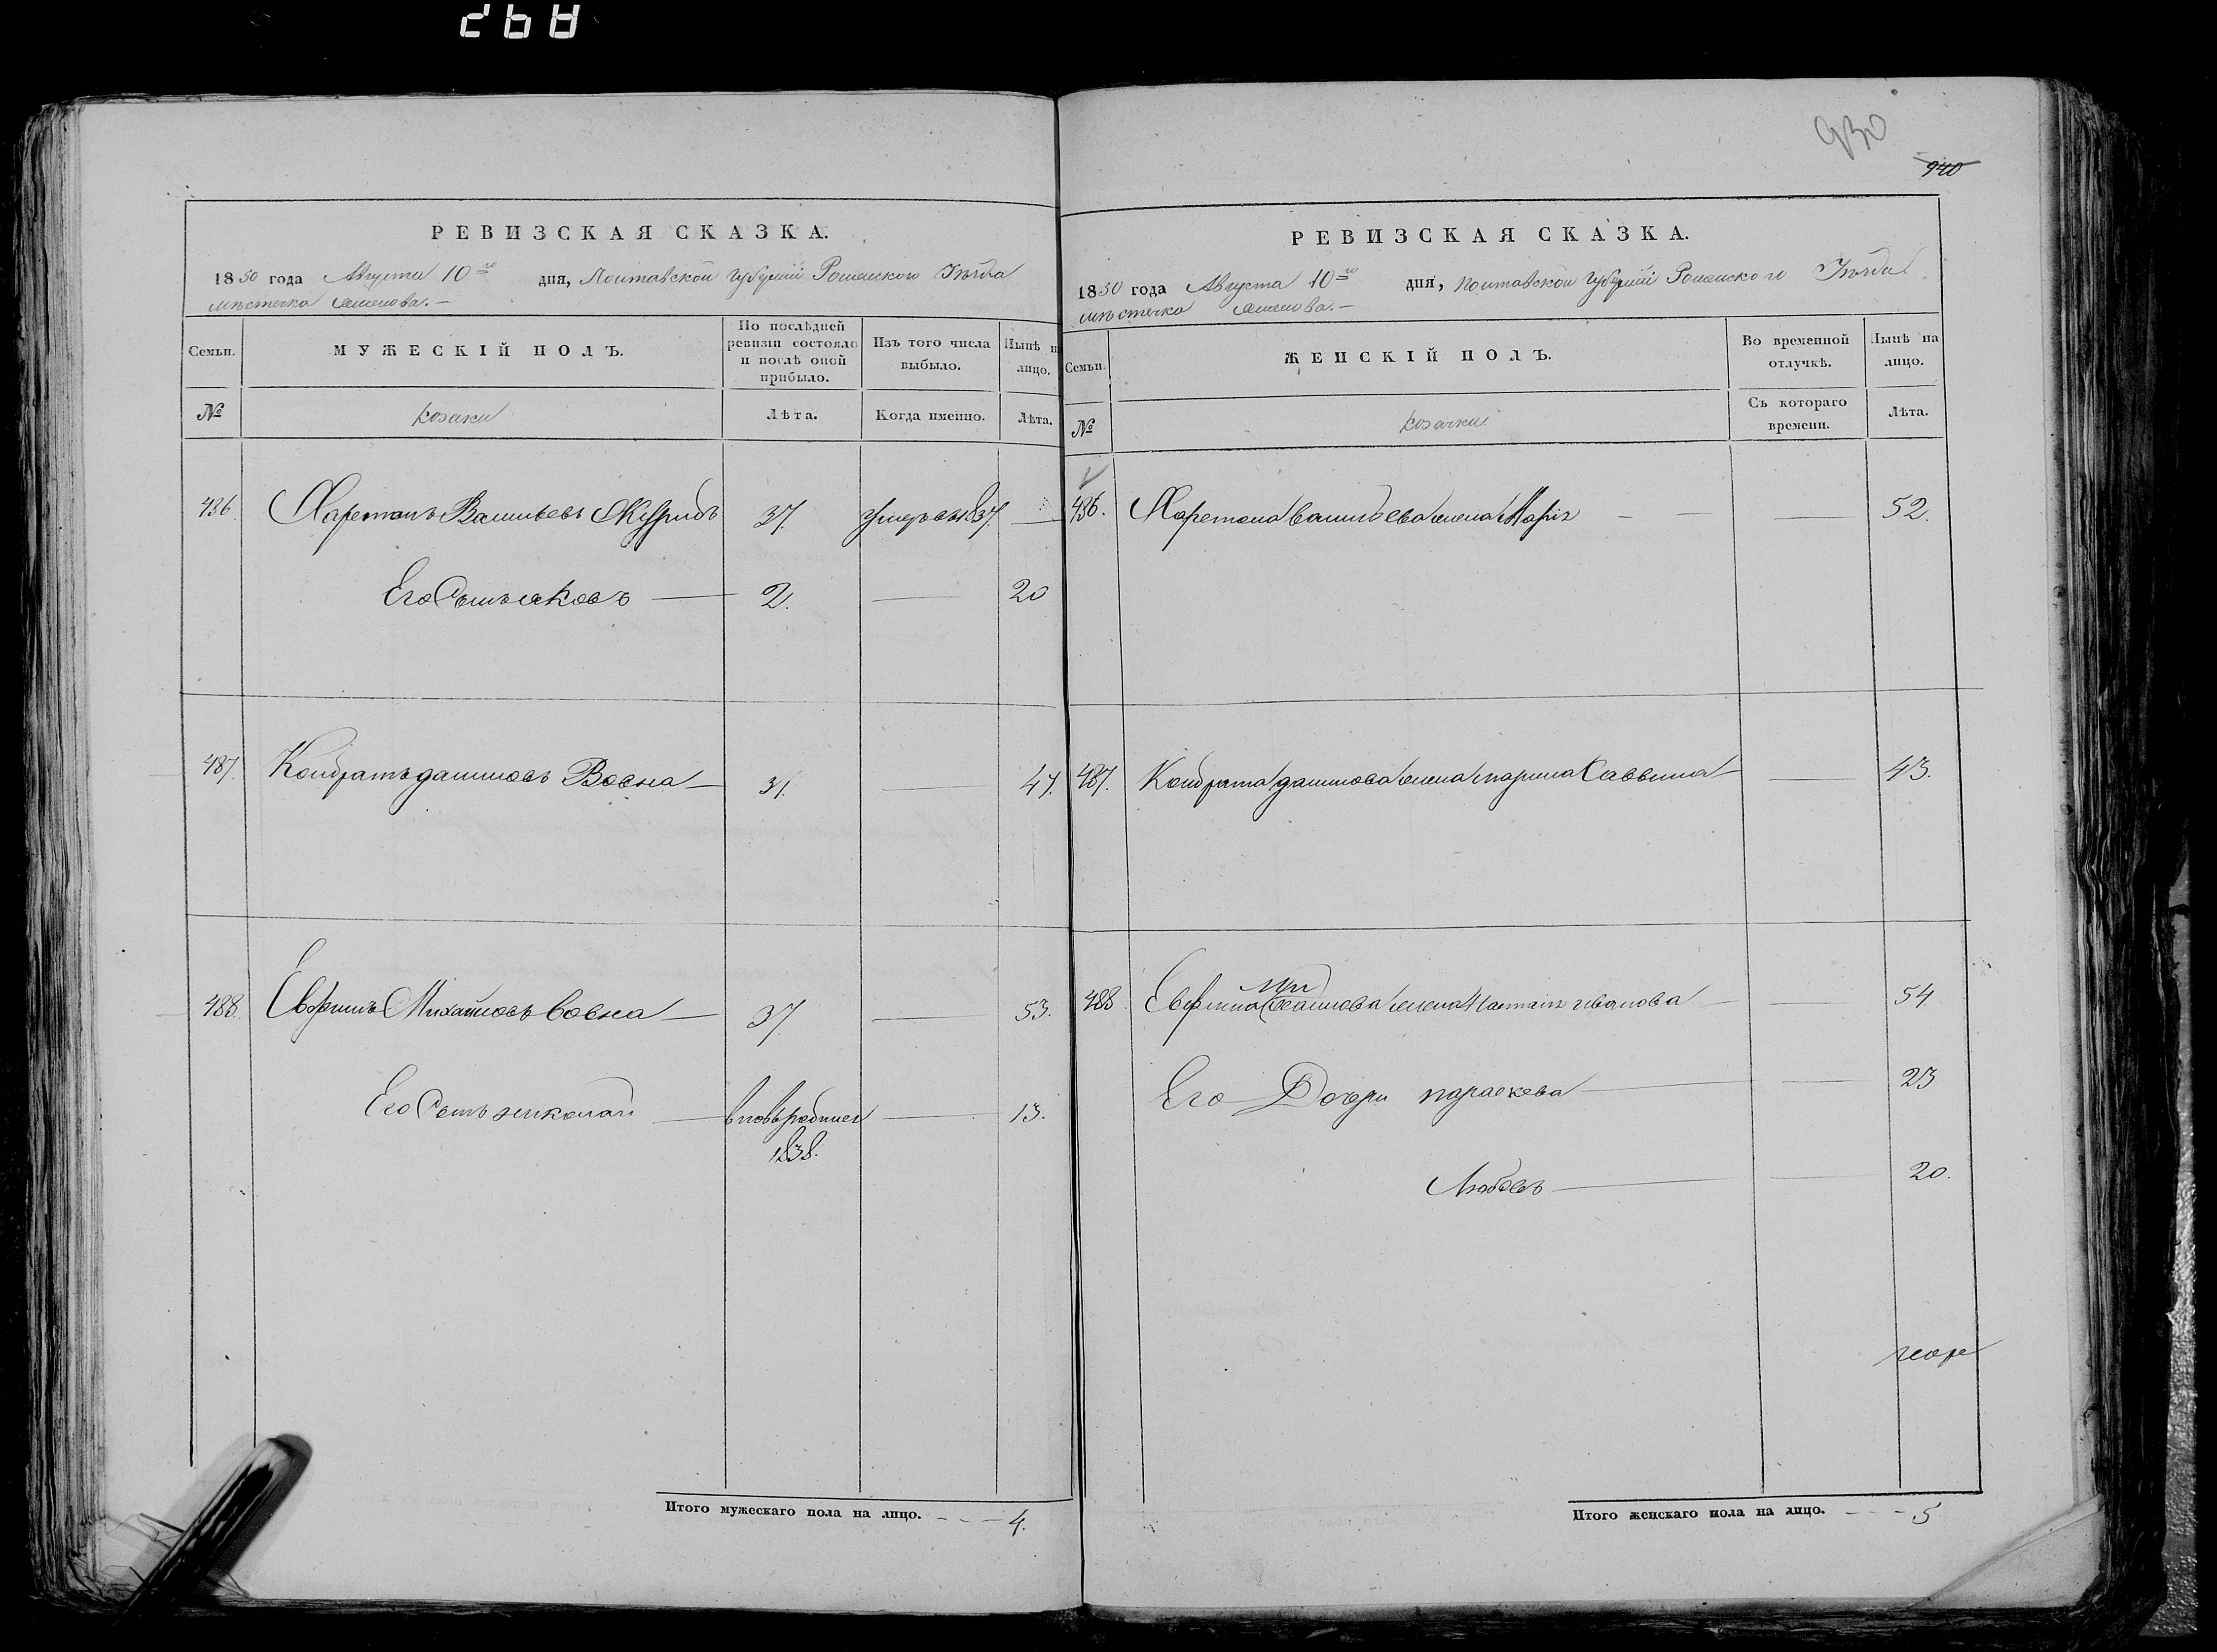 268
930
940
РЕВИЗСКАЯ СКАЗКА.
1850 года Августа 10го дня, Полтавской Губерніи Роменского Уѣзда
мѣстечка Смелова.—
Семьи.
МУЖЕСКІЙ ПОЛЪ.
По послѣдней ревизіи состояло и послѣ оной прибыло.
Изъ того числа выбыло.
Нынѣ на лицо.
№
козаки
Лѣта.
Когда именно.
Лѣта.
486. Харетонъ Васильевъ 37 умеръ въ 1837 —
Его Сынъ Яковъ — 2. — 20
487. Кондратъ Даниловъ Вовна — 31. — 47.
488. Ефимъ Михайловъ Вовна — 37. — 53.
Его Сынъ Николай — вновь рожденъ — 13.
1838.
Итого мужескаго пола на лицо. - - - 4.
РЕВИЗСКАЯ СКАЗКА.
1850 года Августа 10го дня, Полтавской Губерніи Роменского Уѣзда
мѣстечка Смелова.—
Семьи.
ЖЕНСКІЙ ПОЛЪ.
Во временной отлучкѣ.
Нынѣ на лицо.
№
козачки
Съ котораго времени.
Лѣта.
486. Харетона Васильева жена Марія — — 52.
487. Кондрата Данилова жена Марина Саввина — — 43.
488. Ефима Михайлова жена Настасія Иванова — — 54
Его Дочери Параскева — — 23
Любовь — — 20.
Итого женскаго пола на лицо. - - - 5